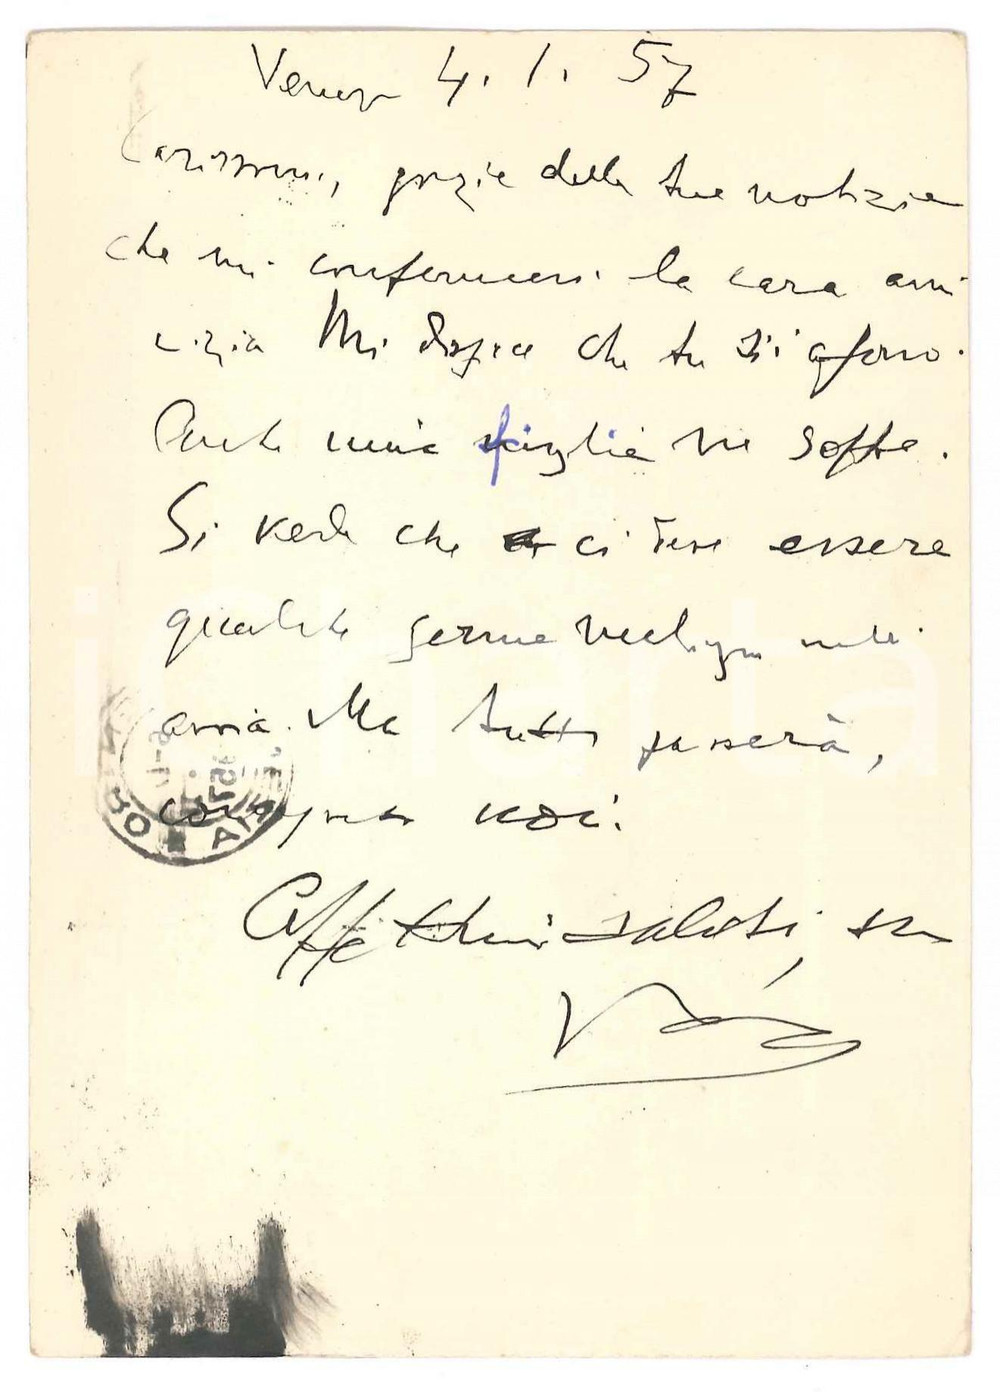 Venezia 4.1.57
Carissimi, grazie delle tue notizie
che mi confermi la cara ami
cizia Mi dispiace che tu sii afono.
Anche mia figlia ne soffre.
Si vede che ci deve essere
qualche germe nell'
aria. Ma tutto passerà,
compresi noi.
Affettuosi saluti, tuo